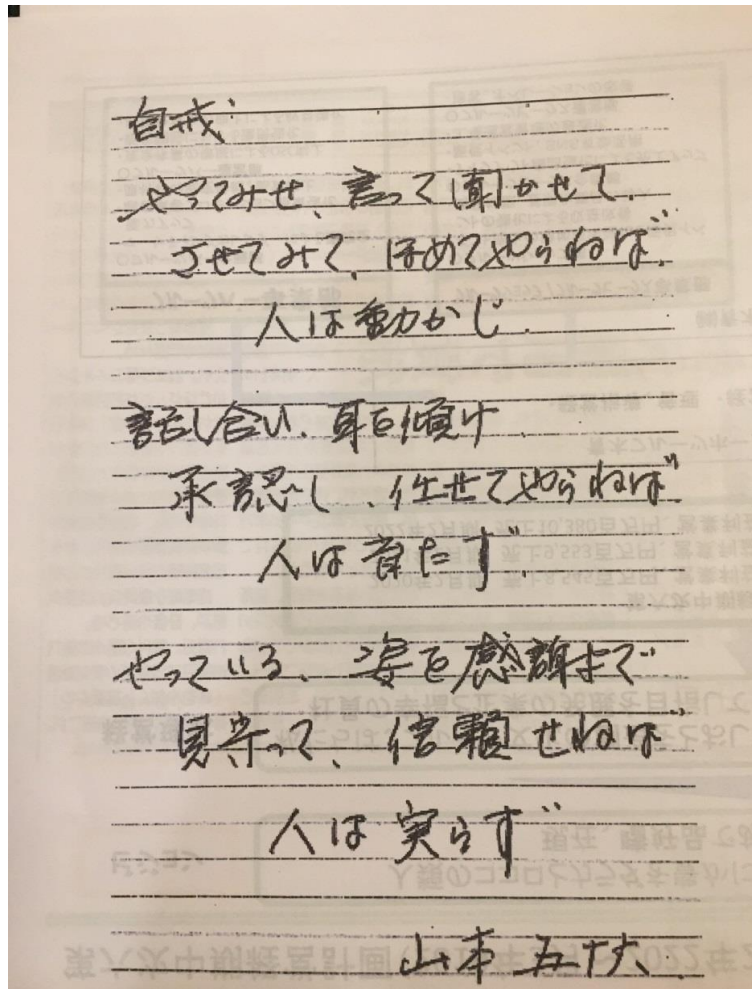 自戒
やってみせ、言って聞かせて、
させてみて、ほめてやらねば、
人は動かじ.
話し合い、耳を傾け
承認し、任せてやらねば
人は育たず.
やっている、姿を感謝まで
見守って、信頼せねば
人は実らず
山本五十六